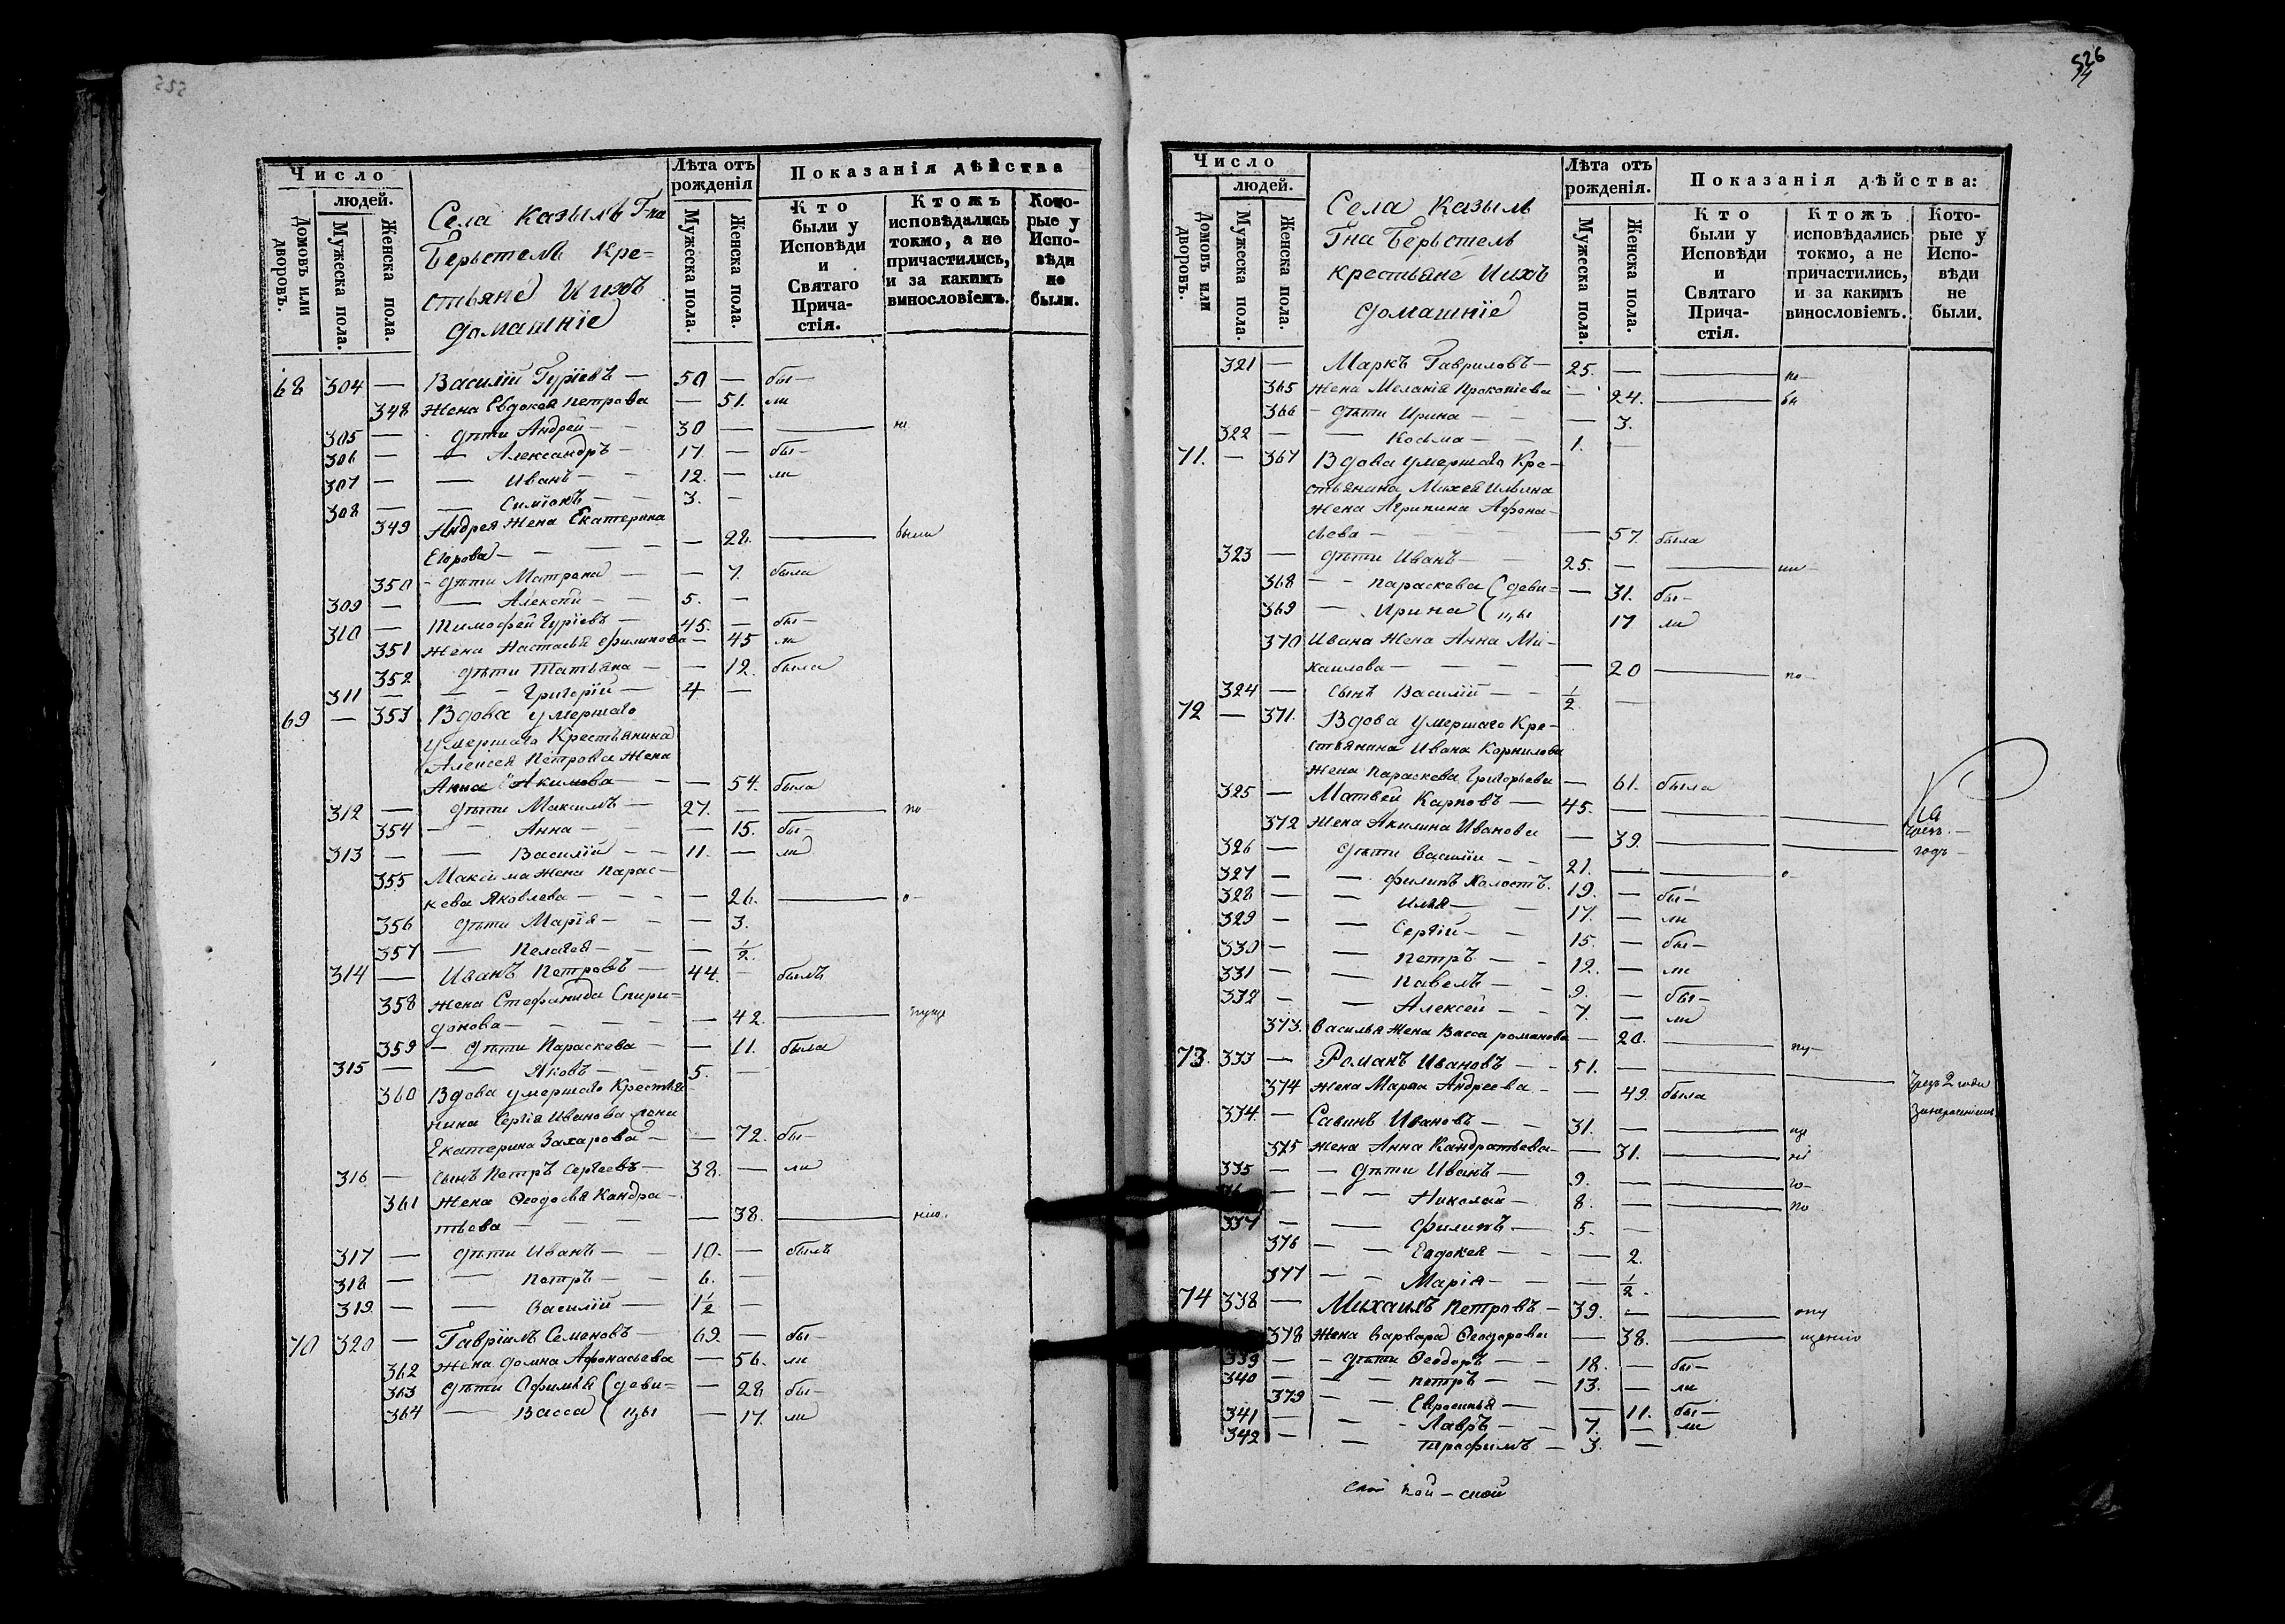 525
Число
людей.
Домовъ или дворовъ.
Мужеска пола.
Женска пола.
Села Казыль Г-на
Берьстель кре-
стьяне и ихъ
домашніе
Лѣта отъ рожденія
Мужеска пола.
Женска пола.
Показанія дѣйства
Кто были у Исповѣди и Святаго Прича-стія.
Ктожъ исповѣдались токмо, а не причастились, и за какимъ винословіемъ.
Кото-рые у Испо-вѣди не были.
68 304 — Василій Гуріевъ — 50 — бы—
348 жена Евдокея Петрова — 51. ли
305 — дѣти Андрей — 30 — — не
306 — — Александръ — 17. — бы—
307 — — Иванъ — 12. — ли
308 — — Симіонъ — 3. —
349 Андрея жена Екатерина
Егорова — — 28. — были
350 — дѣти Матрона — — 7. была
309 — — Алексѣй — 5. —
310 — Тимофей Гуріевъ — 45. — бы—
351 жена Настасья Филипова — 45 ли
352 дѣти Татьяна — — 12. была
311 — — Григорій — 4 —
69 — 353 Вдова умершаго
умершаго Крестьянина
Алексея Петрова жена
Анна Акимова — — 54. была
312 — дѣти Максимъ — 27. — — по
354 — — Анна — — 15. бы—
313 — — Василій — 11. — ли
355 Максима жена Парас-
кева Яковлева — — 26. — о—
356 дѣти Марія — — 3.
357 — Пелагея — — ½.
314 — Иванъ Петровъ — 44. — былъ
358 жена Стефанида Спири-
донова — — 42. —
359 — дѣти Параскева — — 11. была
315 — — Яковъ — 5. —
360 Вдова умершаго Крестья-
нина Сергія Иванова жена
Екатерина Захарова — — 72. бы—
316 — сынъ Петръ Сергеевъ — 38. — ли
361 жена Ѳеодосья Кандра-
тьева — — 38. — нію.
317 — дѣти Иванъ — 10. — былъ
318 — — Петръ — 6. —
319. — — Василій — 1½ —
70 320 — Гавріилъ Семеновъ — 69. — бы—
362 жена Домна Афонасьева — 56. ли
363 дѣти Офимья (деви= — 28 бы—
364 — Васса (цы — 17. ли
526
Число
людей.
Домовъ или дворовъ.
Мужеска пола.
Женска пола.
Села Казыль
Г-на Берьстель
крестьяне и ихъ
домашніе
Лѣта отъ рожденія.
Мужеска пола.
Женска пола.
Показанія дѣйства:
Кто были у Исповѣди и Святаго Прича-стія.
Ктожъ исповѣдались токмо, а не причастились, и за какимъ винословіемъ.
Кото-рые у Испо-вѣди не были.
321 — Маркъ Гавриловъ — 25. — — не—
365 жена Меланія Прокопіева — 24. — бы
366 — дѣти Ирина — — 3.
322 — — Косьма — 1. —
71. — 367 Вдова умершаго Кре-
стьянина Михея Ильина
жена Агрипина Афона-
сьева — — 57. была
323 — дѣти Иванъ — 25. — — ли—
368 — — Параскева (деви= — 31. бы—
369 — Ирина (цы 17 ли
370 Ивана жена Анна Ми-
хаилова — — 20 — по—
324 — сынъ Василій — ½ —
72 — 371. Вдова умершаго Кре-
стьянина Ивана Корнилова
жена Параскева Григорьева — 61. была
325 — Матвей Карповъ — 45. — — —
372 жена Акилина Иванова — 39. — — годъ
326 — дѣти Василій — 21. — — о—
327 — — Филипъ холостъ. 19. — бы—
328 — — Илья — 17. — ли
329 — — Сергій — 15. — бы—
330 — — Петръ — 12. — ли
331 — — Павелъ — 9. — бы—
332 — — Алексей — 7. — ли
373. Василья жена Васса Романова — 20. — пу—
73. 333 — Романъ Ивановъ — 51. — — — Чрезъ 2 годы
374 жена Марѳа Андреева — 49. была
334. — Савинъ Ивановъ — 31. — —
375 жена Анна Кандратьева — — 31. —
335 — — дѣти Иванъ — 9. — —
— — Николай — 8. — — по
337 — — Филипъ — 5. —
376 — — Евдокея — — 2.
377 — — Марія — — ½.
74 338 — Михаилъ Петровъ — 39. — — опу
378 жена Варвара Ѳеодорова — 38. — щенію
339 — — дѣти Ѳеодоръ — 18. — бы—
340 — — Петръ — 13. — ли
379 — — Евросинья — — 11. бы—
341 — — Лавръ — 7. — ли
342 — — Трофимъ — 3. —